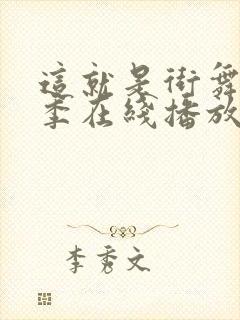 這就是街舞
季在綫播放
李秀文